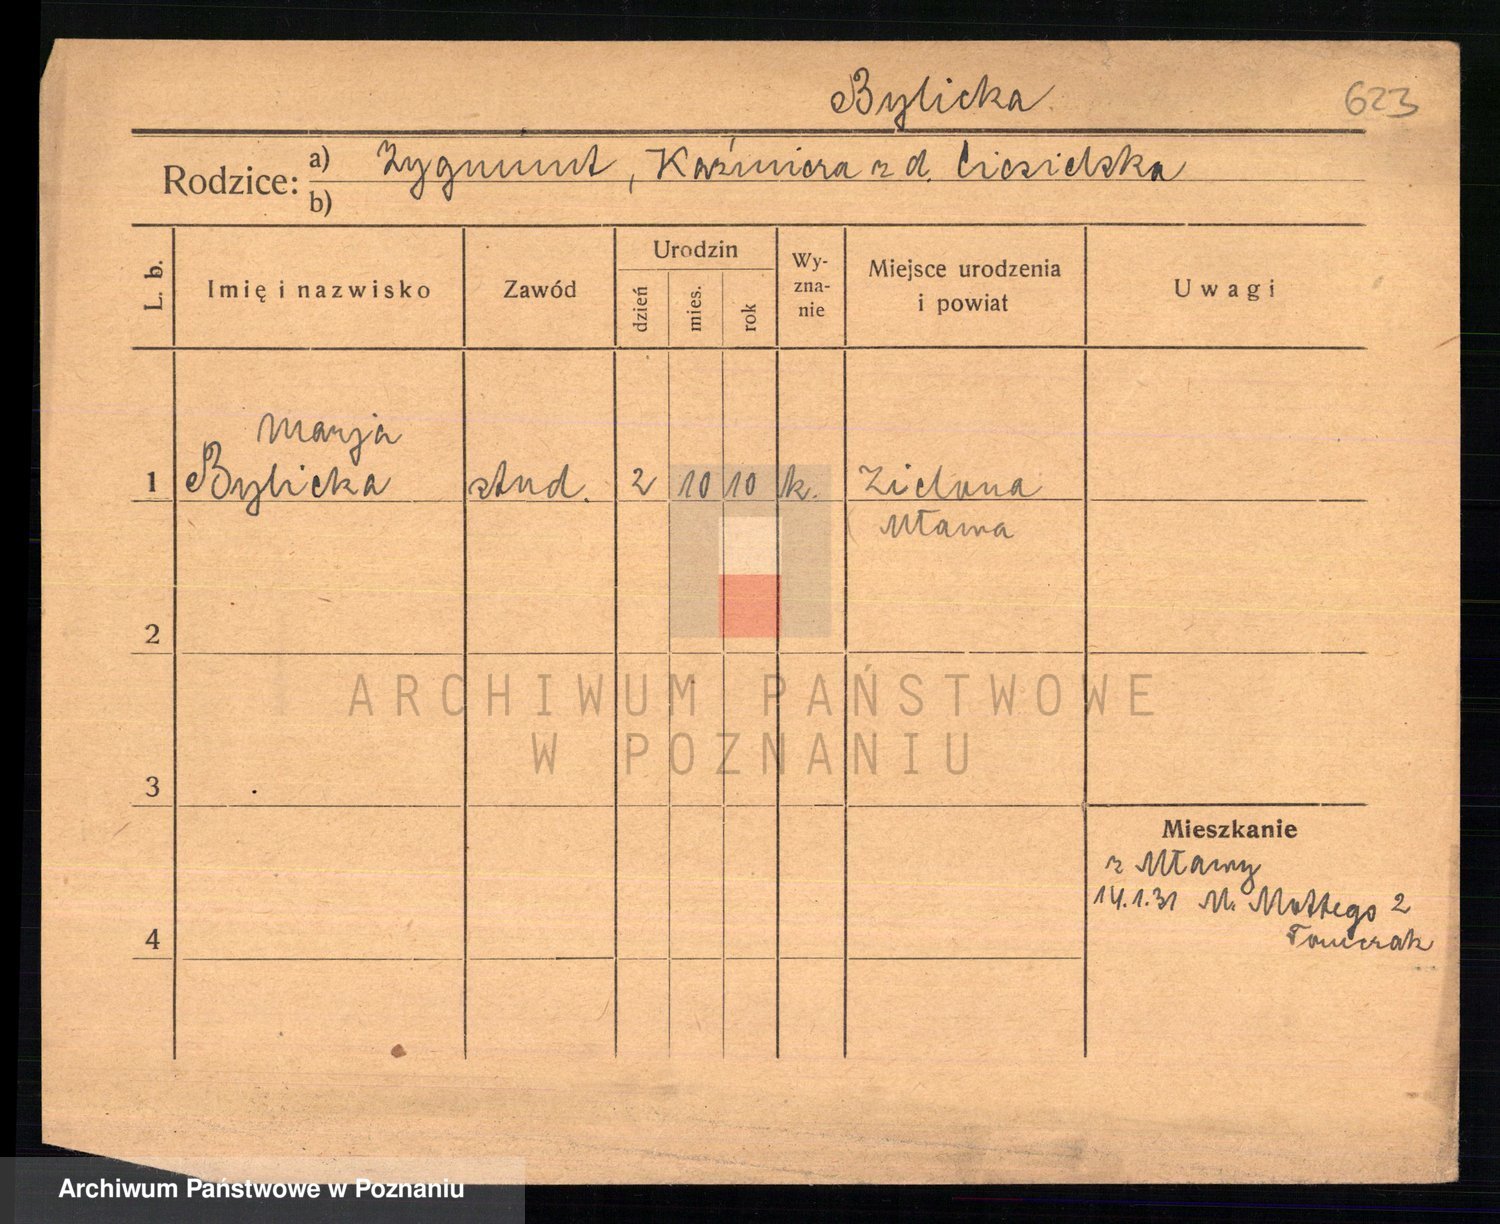 Bylicka
623
Rodzice: a) Zygmunt, Kaźmiera z d. Ciesielska
b)
L. b.
Imię i nazwisko
Zawód
Urodzin
dzień
mies.
rok
Wy-
zna-
nie
Miejsce urodzenia
i powiat
Uwagi
Marja
1 Bylicka stud. 2 10 10 k. Zielona
Mława
2
ARCHIWUM PAŃSTWOWE
W POZNANIU
3
Mieszkanie
z Mławy
14.1.31 M. Mottego 2
Tomczak
4
Archiwum Państwowe w Poznaniu